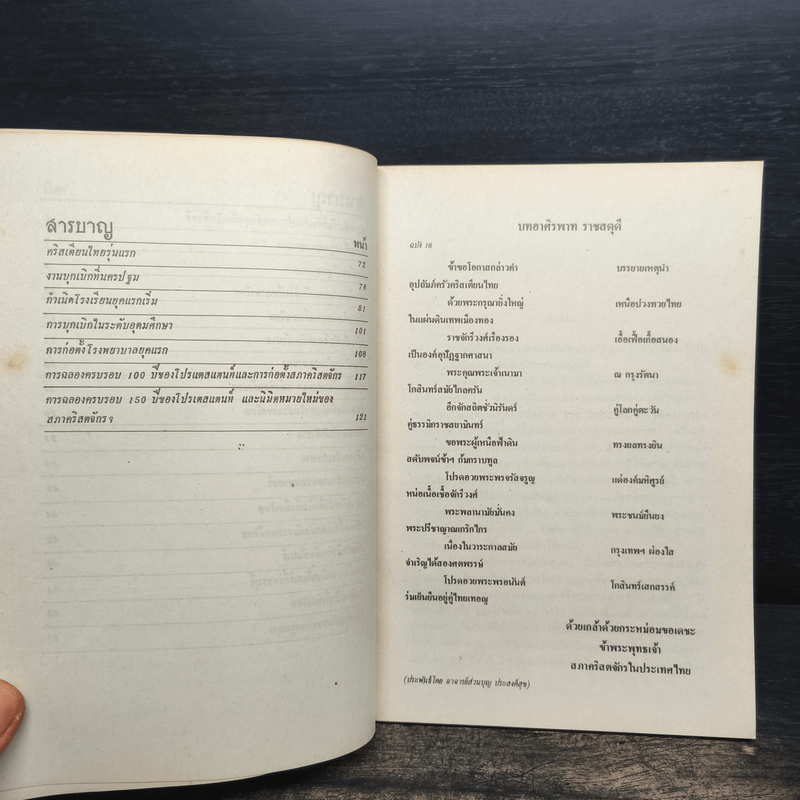 สารบาญ
หน้า
คริสเตียนไทยรุ่นแรก 72
งานบุกเบิกที่นครปฐม 78
กำเนิดโรงเรียนยุคแรกเริ่ม 81
การบุกเบิกในระดับอุดมศึกษา 101
การก่อตั้งโรงพยาบาลยุคแรก 108
การฉลองครบรอบ 100 ปีของโปรเตสแตนท์และการก่อตั้งสภาคริสตจักร 117
การฉลองครบรอบ 150 ปีของโปรเตสแตนท์ และนิมิตหมายใหม่ของ
สภาคริสตจักรฯ 121
บทอาศิรพาท ราชสดุดี
ฉบัง 16
ข้าขอโอกาสกล่าวคำ บรรยายเหตุนำ
อุปถัมภ์ครัวคริสเตียนไทย
ด้วยพระกรุณายิ่งใหญ่ เหนือปวงทวยไทย
ในแผ่นดินเทพเมืองทอง
ราชจักรีวงศ์เรืองรอง เอื้อเฟื้อเกื้อสนอง
เป็นองค์อุปัฏฐากศาสนา
พระคุณพระเจ้าเนามา ณ กรุงรัตนา
โกสินทร์สมัยไกลครัน
อีกจักสถิตชั่วนิรันดร์ คู่โลกคู่ตะวัน
คู่ธรรมิกราชสยามินทร์
ขอพระผู้เหนือฟ้าดิน ทรงยลทรงยิน
สดับพจน์ข้าฯ ก้มกราบทูล
โปรดอวยพระพรจรัสจรูญ แด่องค์มหิศูรย์
หน่อเนื้อเชื้อจักรีวงศ์
พระพลานามัยมั่นคง พระชนม์ยืนยง
พระปรีชาญาณเกริกไกร
เนื่องในวาระกาลสมัย กรุงเทพฯ ผ่องใส
จำเริญได้สองศตพรรษ์
โปรดอวยพระพรอนันต์ โกสินทร์เสกสรรค์
ร่มเย็นยืนอยู่คู่ไทยเทอญ
ด้วยเกล้าด้วยกระหม่อมขอเดชะ
ข้าพระพุทธเจ้า
สภาคริสตจักรในประเทศไทย
(ประพันธ์โดย อาจารย์ส่วนบุญ ประสงค์สุข)